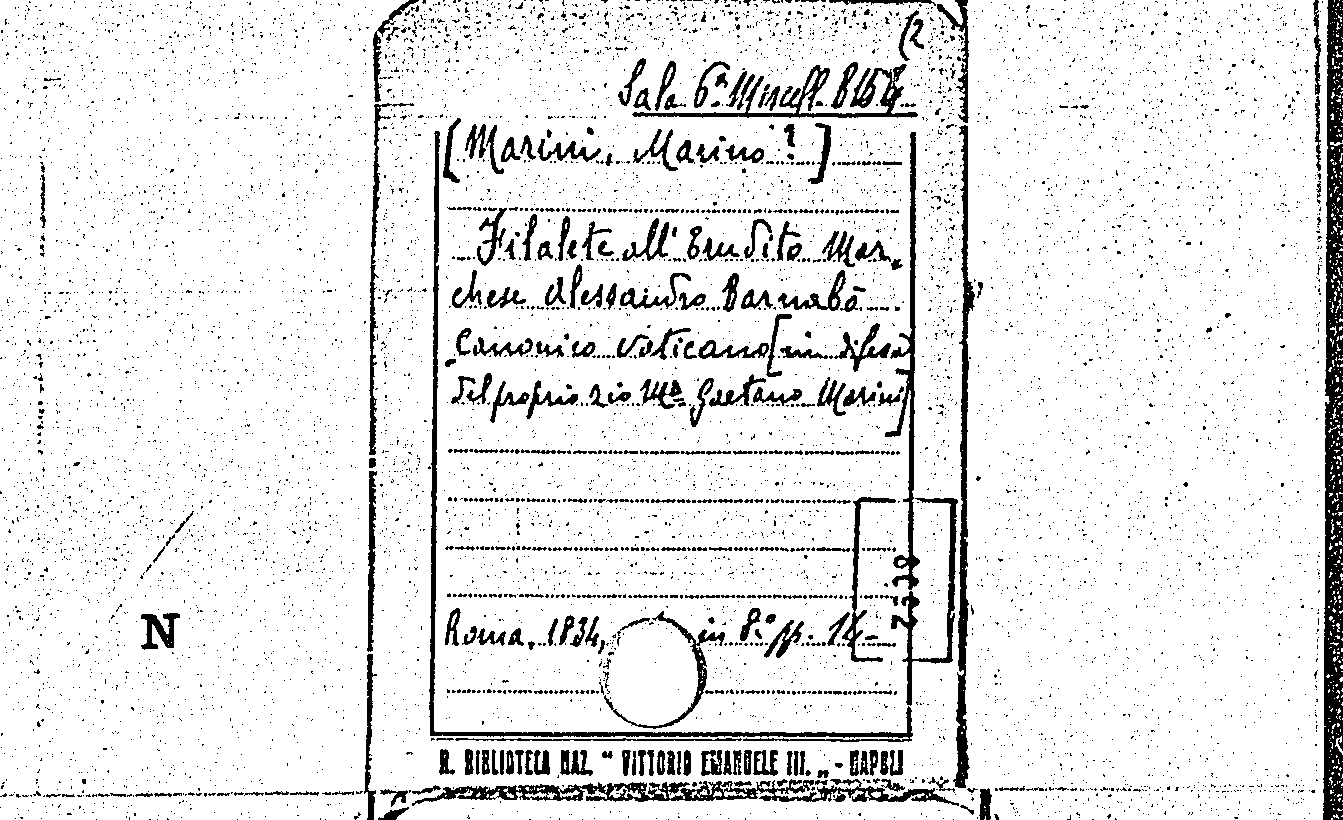 (2
Sala 6ª Miscell. B 15
[Marini, Marino ?]
Filalete all' Erudito Mar-
chese Alessandro Barnabò
Canonico Vaticano [in difesa
del proprio zio Mr Gaetano Marini]
Roma, 1834, in 8.° pp. 14-
N
R. BIBLIOTECA NAZ. “ VITTORIO EMANUELE III. „ - NAPOLI